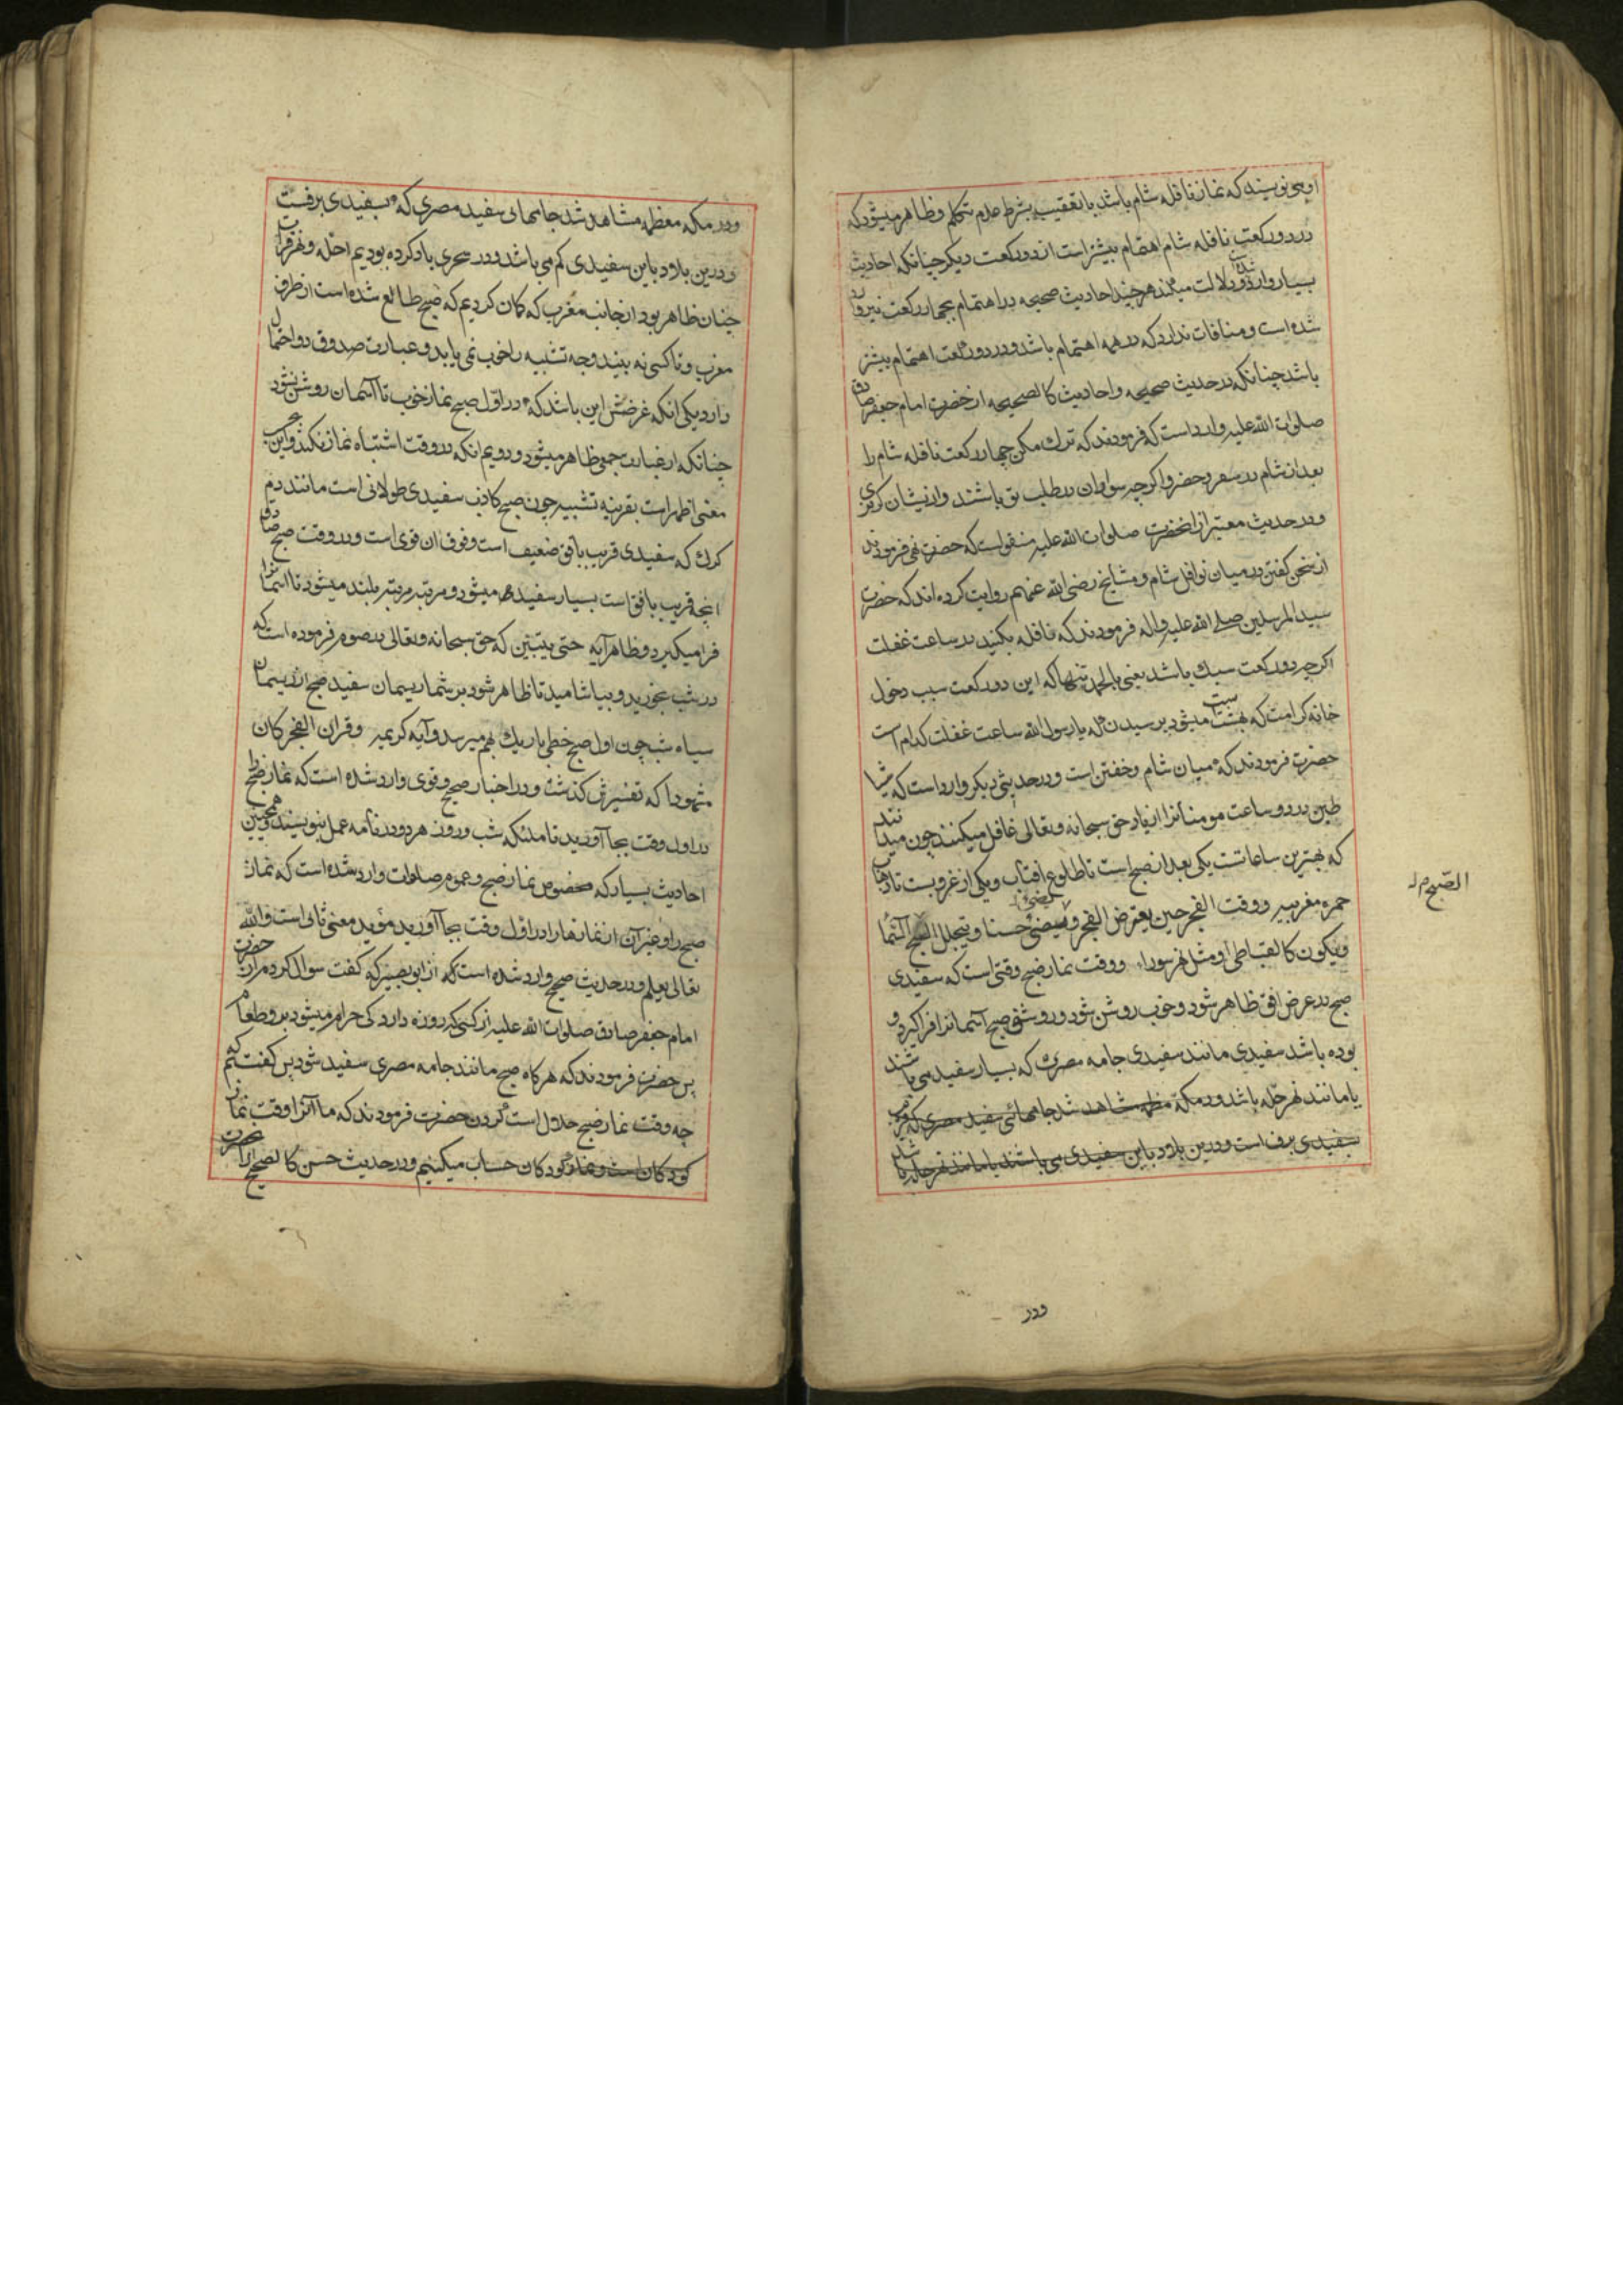 او می نویسند که نماز نافله شام باشد با تعقیب بشرط عدم تکلم و ظاهر میشود که
در دو رکعت نافله شام اهتمام بیشتر است از دو رکعت دیکر چنانکه احادیث
بسیار وارد شده و دلالت میکند هر چند احادیث صحیحه در اهتمام بچهار رکعت نیز وارد
شده است و منافات ندارد که در همه اهتمام باشد و در دو رکعت اهتمام بیشتر
باشد چنانکه در حدیث صحیحه و احادیث کالصحیحه از حضرت امام جعفر صادق
صلوات الله علیه وارد است که فرمودند که ترک مکن چهار رکعت نافله شام را
بعد از شام در سفر و حضر و اکرچه سواران در طلب تو باشند و از یشان کریزی
و در حدیث معتبر از انحضرت صلوات الله علیه منقولست که حضرت نهی فرمودند
از سخن کفتن در میان نوافل شام و مشایخ رضی الله عنهم روایت کرده اند که حضرت
سید المرسلین صلی الله علیه و اله فرمودند که نافله بکنید در ساعت غفلت
اکرچه دو رکعت سبک باشد یعنی بالحمد تنها که این دو رکعت سبب دخول
خانه کرامت که بهشت است میشود پرسیدند که یا رسول الله ساعت غفلت کدام است
حضرت فرمودند که میان شام و خفتن است و در حدیثی دیکر وارد است که شیا
طین در دو ساعت مومنانرا از یاد حق سبحانه و تعالی غافل میکنند چون میدانند
که بهترین ساعاتست یکی بعد از صبح است تا طلوع افتاب و یکی از غروبست تا ذهاب
حمره مغربیه و وقت الفجر حین یعترض الفجر و یضئ حسنا و یتجلل الصبح السما
و یکون کالقباطی او مثل نهر سورا و وقت نماز صبح وقتی است که سفیدی
صبح در عرض افق ظاهر شود و خوب روشن شود و روشنی صبح آسمانرا فرا کیرد و
بوده باشد سفیدی مانند سفیدی جامه مصری که بسیار سفید می باشند
یا مانند نهر حله باشد و در مکه معظمه مشاهد شد جامهائی سفید مصری که قریب
بسفیدی برف است و درین بلاد باین سفیدی می باشند یا مانند نهر حله باشد
الصبح م له
و در
و در مکه معظمه مشاهد شد جامهائی سفید مصری که بسفیدی برفست
و درین بلاد باین سفیدی کم می باشد و در سحری یاد کرده بودیم حله و نهر فرات
چنان ظاهر بود از جانب مغرب که کمان کردیم که صبح طالع شده است از طرف
مغرب و تا کسی نه بیند وجه تشبیه را خوب نمی یابد و عبارت صدوق دو احتمال
دارد یکی انکه غرضش این باشد که در اول صبح نماز خوب تا آسمان روشن نشود
چنانکه از عبارت جمعی ظاهر میشود و دویم انکه در وقت اشتباه نماز نکند و این
معنی اظهر است بقرینه تشبیه چون صبح کاذب سفیدی طولانی است مانند دم
کرک که سفیدی قریب بافق ضعیف است و فوق ان قوی است و در وقت صبح صادق
انچه قریب بافق است بسیار سفید میشود و مرتبه مرتبه بلند میشود تا اسمانرا
فرا میکیرد و ظاهر آیه حتی یتبین که حق سبحانه و تعالی در صوم فرموده است که
در شب بخورید و بیاشامید تا ظاهر شود بر شما ریسمان سفید صبح از ریسمان
سیاه شب چون اول صبح خطی باریک بهم میرسد و آیه کریمه و قران الفجر کان
مشهودا که تفسیرش کذشت و در اخبار صحیح و قوی وارد شده است که نماز صبح را
در اول وقت بجا آورید تا ملئکه شب و روز هر دو در نامه عمل بنویسند و همچنین
احادیث بسیار که مخصوص نماز صبح و عموم صلوات وارد شده است که نماز
صبح را و غیر آن از نمازها را در اول وقت بجا آورید موید معنی ثانی است و الله
تعالی یعلم و در حدیث صحیح وارد شده است که از ابو بصیر که کفت سوال کردم از حضرت
امام جعفر صادق صلوات الله علیه از کسی که روزه دارد کی حرام میشود برو طعام
پس حضرت فرمودند که هر کاه صبح مانند جامه مصری سفید شود پس کفتم که
چه وقت نماز صبح حلال است کردن حضرت فرمودند که ما آنرا وقت نماز
کودکان است و نماز کودکان حساب میکنیم و در حدیث حسن کالصحیح از آنحضرت